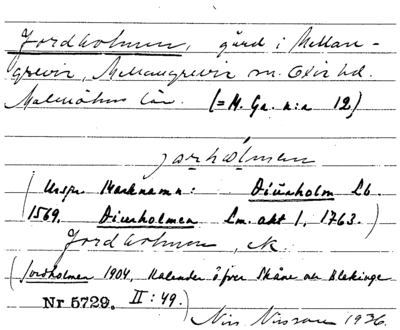 Jordholmen, gård i Mellan-
grevie, Mellangrevie sn. Oxie hd.
Malmöhus län. (= H. Ga. n:a 12)
jorholmen
(Urspr. Marknamn: Diürholm Lb.
1569. Diurholmen Lm. akt 1, 1763.)
Jordholmen, ek.
(Jordholmen 1904, Kalender öfver Skåne och Blekinge
Nr 5729. II: 49.)
Nils Nilsson 1936.